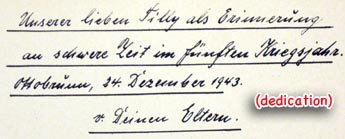 Unserer lieben Tilly als Erinnerung
an schwere Zeit im fünften Kriegsjahr.
Ottobrunn, 24. Dezember 1943.
(dedication)
v. Deinen Eltern.